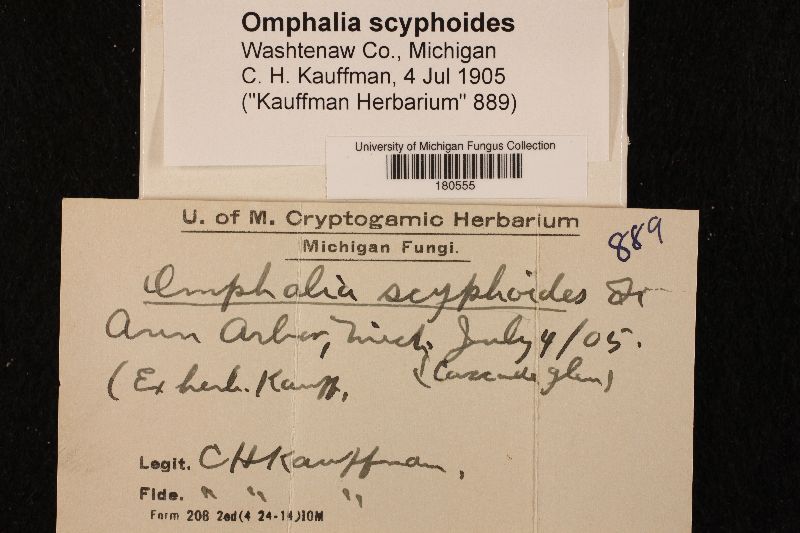 Omphalia scyphoides
Washtenaw Co., Michigan
C. H. Kauffman, 4 Jul 1905
("Kauffman Herbarium" 889)
University of Michigan Fungus Collection
180555
U. of M. Cryptogamic Herbarium
Michigan Fungi.
889
Omphalia scyphoides Fr
Ann Arbor, Mich. July 4/05.
(Ex herb. Kauff. (Cascade glen)
Legit. CHKauffman,
Fide. " " "
Form 208 2ed(4 24-14)10M